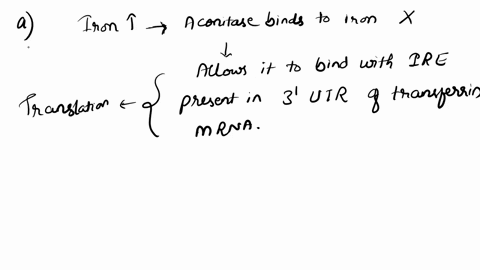 a) Iron ↑ → Aconitase binds to iron X
↓
Allows it to bind with IRE
Translation ← { present in 3' UTR of transferrin
mRNA.